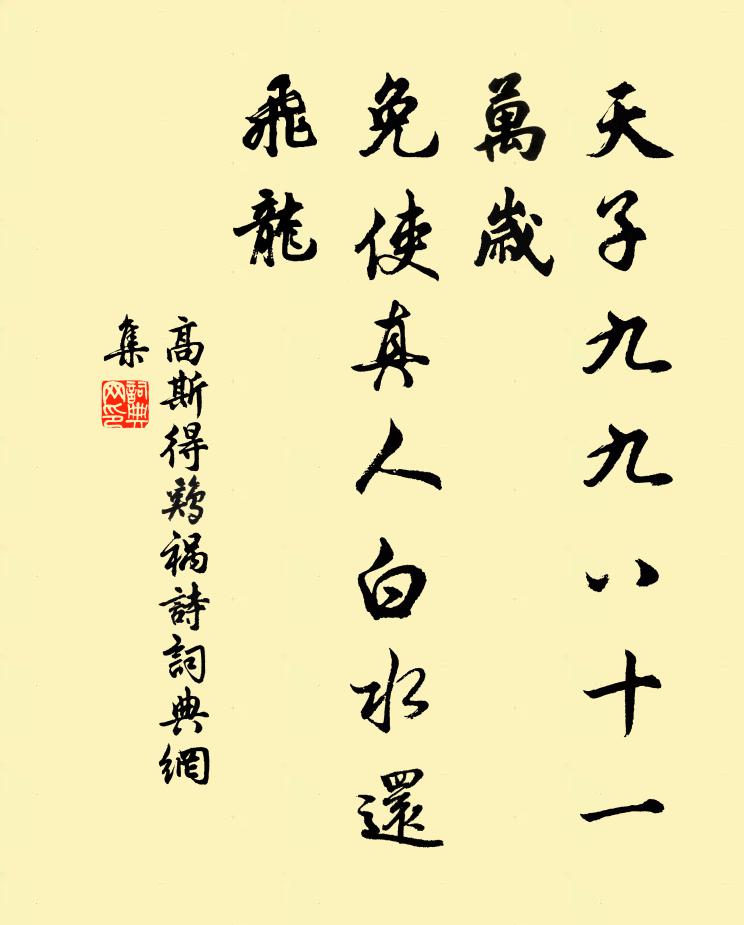 天子九九八十一
萬歲
免使真人白水還
飛龍
高斯得鷄禍詩詞典網
集
詞典
网印